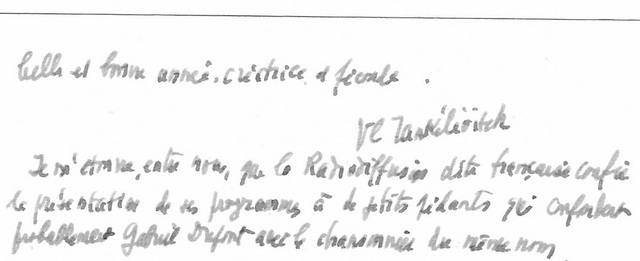 belle et bonne année, créatrice et féconde.
Vl Jankélévitch
Je m'étonne, entre nous, que la Radiodiffusion dite française confie
la présentation de ses programmes à de petits pédants qui confondent
probablement Gabriel Dupont avec le chansonnier du même nom.